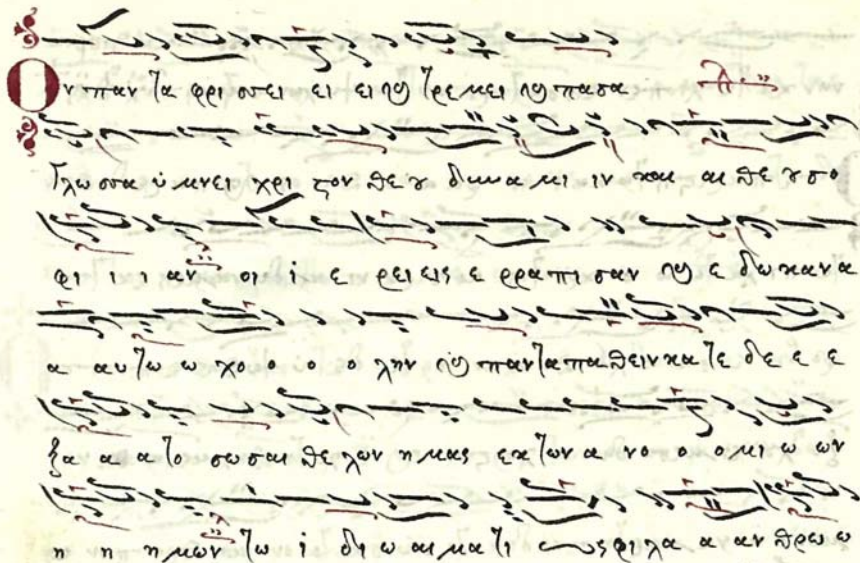 Ον παν τα φρι σσει ει ει ϗ τρε μει ϗ πασα
γλω σσα ὑ μνει χρι στον θε ου δυνα μι ιν και αι θε ου σο
φι ι ι αν οι ἱ ε ρειεις ε ρραπι σαν ϗ ε δωκανα
α αυτω ω χο ο ο ο λην ϗ πανταπαθειν κα τε δε ε ε
ξα α α το σωσαι θε λων η μας εκ των α νο ο ο μι ω ων
η η η μων τω ἰ δι ω αι μα τι ως φι λα α αν θρω ω